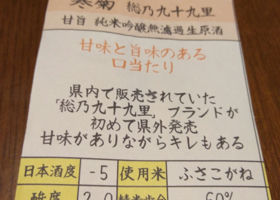 寒菊 総乃九十九里
甘旨 純米吟醸無濾過生原酒
甘味と旨味のある
口当たり
県内で販売されていた
「総乃九十九里」ブランドが
初めて県外発売
甘味がありながらキレもある
日本酒度 -5 使用米 ふさこがね
酸度 2.0 精米歩合 60%